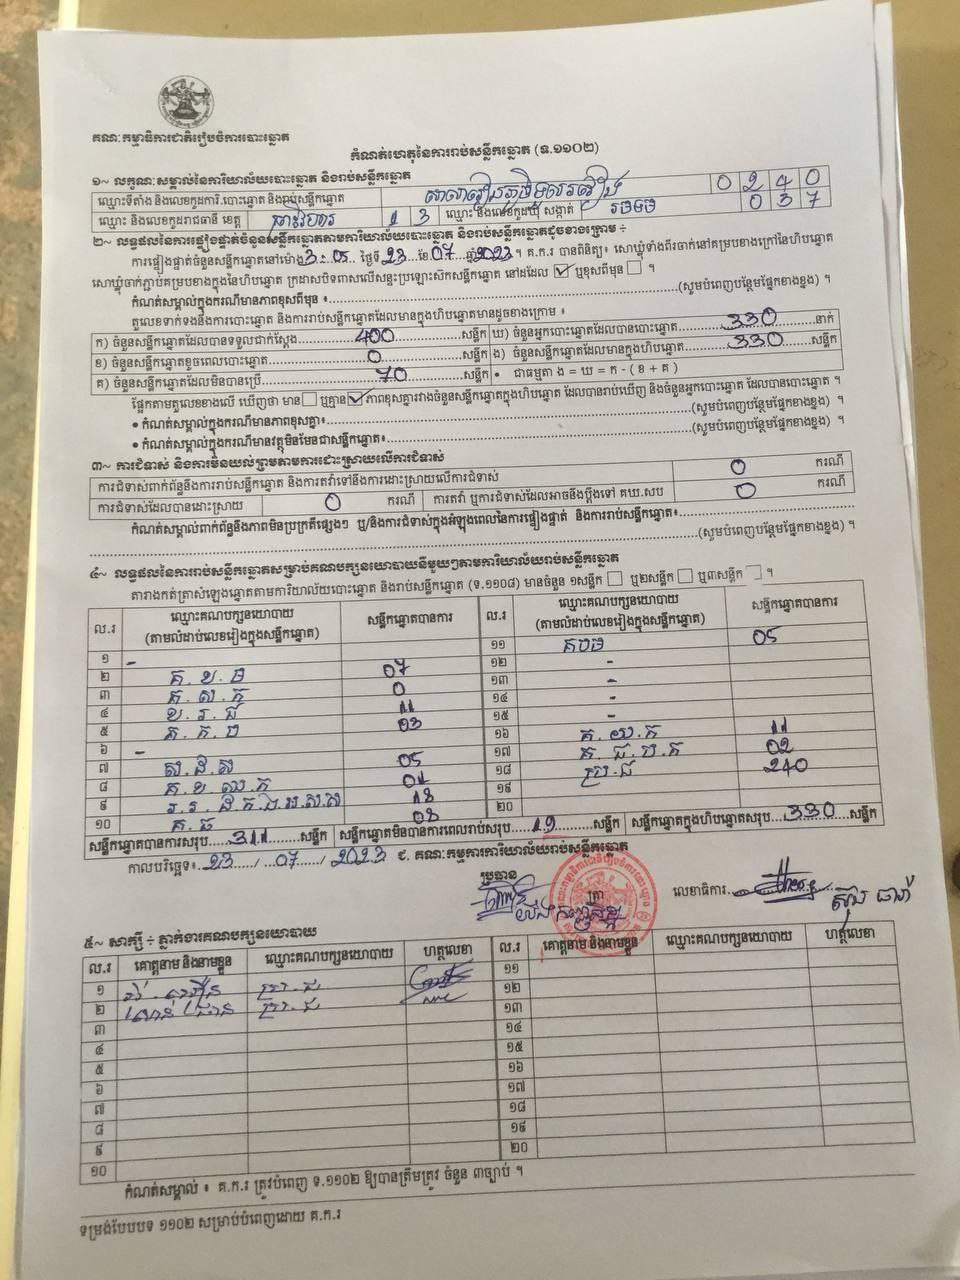 គណៈកម្មាធិការជាតិរៀបចំការបោះឆ្នោត
កំណត់ហេតុនៃការរាប់សន្លឹកឆ្នោត (ទ.១១០២)
១~ លក្ខណៈសម្គាល់នៃការិយាល័យបោះឆ្នោត និងរាប់សន្លឹកឆ្នោត
ឈ្មោះទីតាំង និងលេខកូដការិ.បោះឆ្នោត និងរាប់សន្លឹកឆ្នោត 0 2 4 0
ឈ្មោះ និងលេខកូដរាជធានី ខេត្ត ព្រះវិហារ 1 3 ឈ្មោះ និងលេខកូដឃុំ សង្កាត់ រមទម 0 3 7
២~ លទ្ធផលនៃការផ្ទៀងផ្ទាត់ចំនួនសន្លឹកឆ្នោតតាមការិយាល័យបោះឆ្នោត និងរាប់សន្លឹកឆ្នោតដូចខាងក្រោម ÷
ការផ្ទៀងផ្ទាត់ចំនួនសន្លឹកឆ្នោតនៅម៉ោង 3:05 ថ្ងៃទី 23 ខែ 07 ឆ្នាំ 2023 ។ គ.ក.រ បានពិនិត្យ៖ សោឃ្លុំទាំងពីរចាក់នៅគម្របខាងក្រៅនៃហិបឆ្នោត
សោឃ្លុំចាក់ភ្ជាប់គម្របខាងក្នុងនៃហិបឆ្នោត ក្រដាសបិទពាសលើសន្ទះប្រឡោះស៊កសន្លឹកឆ្នោត នៅដដែល ☑ ឬខុសពីមុន ☐ ។
កំណត់សម្គាល់ក្នុងករណីមានភាពខុសពីមុន ៖ (សូមបំពេញបន្ថែមផ្នែកខាងខ្នង) ។
តួលេខទាក់ទងនឹងការបោះឆ្នោត និងការរាប់សន្លឹកឆ្នោតដែលមានក្នុងហិបឆ្នោតមានដូចខាងក្រោម ៖
ក) ចំនួនសន្លឹកឆ្នោតដែលបានទទួលជាក់ស្តែង 400 សន្លឹក ឃ) ចំនួនអ្នកបោះឆ្នោតដែលបានបោះឆ្នោត 330 នាក់
ខ) ចំនួនសន្លឹកឆ្នោតខូចពេលបោះឆ្នោត 0 សន្លឹក ង) ចំនួនសន្លឹកឆ្នោតដែលមានក្នុងហិបឆ្នោត 330 សន្លឹក
គ) ចំនួនសន្លឹកឆ្នោតដែលមិនបានប្រើ 70 សន្លឹក • ជាធម្មតា ង = ឃ = ក - ( ខ + គ )
ផ្អែកតាមតួលេខខាងលើ ឃើញថា មាន ☐ ឬគ្មាន ☑ ភាពខុសគ្នារវាងចំនួនសន្លឹកឆ្នោតក្នុងហិបឆ្នោត ដែលបានរាប់ឃើញ និងចំនួនអ្នកបោះឆ្នោត ដែលបានបោះឆ្នោត ។
• កំណត់សម្គាល់ក្នុងករណីមានភាពខុសគ្នា៖ (សូមបំពេញបន្ថែមផ្នែកខាងខ្នង) ។
• កំណត់សម្គាល់ក្នុងករណីមានវត្ថុមិនមែនជាសន្លឹកឆ្នោត៖ (សូមបំពេញបន្ថែមផ្នែកខាងខ្នង) ។
៣~ ការជំទាស់ និងការមិនយល់ព្រមតាមការដោះស្រាយលើការជំទាស់
ការជំទាស់ពាក់ព័ន្ធនឹងការរាប់សន្លឹកឆ្នោត និងការតវ៉ាទៅនឹងការដោះស្រាយលើការជំទាស់ 0 ករណី
ការជំទាស់ដែលបានដោះស្រាយ 0 ករណី ការតវ៉ា ឬការជំទាស់ដែលអាចនឹងប្តឹងទៅ គឃ.សប 0 ករណី
កំណត់សម្គាល់ពាក់ព័ន្ធនឹងភាពមិនប្រក្រតីផ្សេងៗ ឬ/និងការជំទាស់ក្នុងអំឡុងពេលនៃការផ្ទៀងផ្ទាត់ និងការរាប់សន្លឹកឆ្នោត៖
(សូមបំពេញបន្ថែមផ្នែកខាងខ្នង) ។
៤~ លទ្ធផលនៃការរាប់សន្លឹកឆ្នោតសម្រាប់គណបក្សនយោបាយនីមួយៗតាមការិយាល័យរាប់សន្លឹកឆ្នោត
តារាងកត់ត្រាសំឡេងឆ្នោតតាមការិយាល័យបោះឆ្នោត និងរាប់សន្លឹកឆ្នោត (ទ.១១០៨) មានចំនួន ១សន្លឹក ☐ ឬ២សន្លឹក ☐ ឬ៣សន្លឹក ☐ ។
ល.រ ឈ្មោះគណបក្សនយោបាយ (តាមលំដាប់លេខរៀងក្នុងសន្លឹកឆ្នោត) សន្លឹកឆ្នោតបានការ ល.រ ឈ្មោះគណបក្សនយោបាយ (តាមលំដាប់លេខរៀងក្នុងសន្លឹកឆ្នោត) សន្លឹកឆ្នោតបានការ
១ - ១១ គបធ 05
២ គ.ខ.ធ 07 ១២ -
៣ គ.ស.ក 0 ១៣ -
៤ ខ.រ.ជ 11 ១៤ -
៥ 03 ១៥ -
៦ - ១៦ គ.យ.ក 11
៧ ស.ដ.ស 05 ១៧ គ.ជ.ប.ក 02
៨ គ.ខ.ឈ.ក 01 ១៨ ប្រ.ជ 240
៩ 18 ១៩
១០ គ.ធ 08 ២០
សន្លឹកឆ្នោតបានការសរុប 311 សន្លឹក សន្លឹកឆ្នោតមិនបានការពេលរាប់សរុប 19 សន្លឹក សន្លឹកឆ្នោតក្នុងហិបឆ្នោតសរុប 330 សន្លឹក
កាលបរិច្ឆេទ៖ 23 / 07 / 2023 ជ. គណៈកម្មការការិយាល័យរាប់សន្លឹកឆ្នោត
ប្រធាន ត្រា លេខាធិការ
៥~ សាក្សី ÷ ភ្នាក់ងារគណបក្សនយោបាយ
ល.រ គោត្តនាម និងនាមខ្លួន ឈ្មោះគណបក្សនយោបាយ ហត្ថលេខា ល.រ គោត្តនាម និងនាមខ្លួន ឈ្មោះគណបក្សនយោបាយ ហត្ថលេខា
១ ប្រ.ជ ១១
២ ប្រ.ជ ១២
៣ ១៣
៤ ១៤
៥ ១៥
៦ ១៦
៧ ១៧
៨ ១៨
៩ ១៩
១០ ២០
កំណត់សម្គាល់ ៖ គ.ក.រ ត្រូវបំពេញ ទ.១១០២ ឱ្យបានត្រឹមត្រូវ ចំនួន ៣ច្បាប់ ។
ទម្រង់បែបបទ ១១០២ សម្រាប់បំពេញដោយ គ.ក.រ